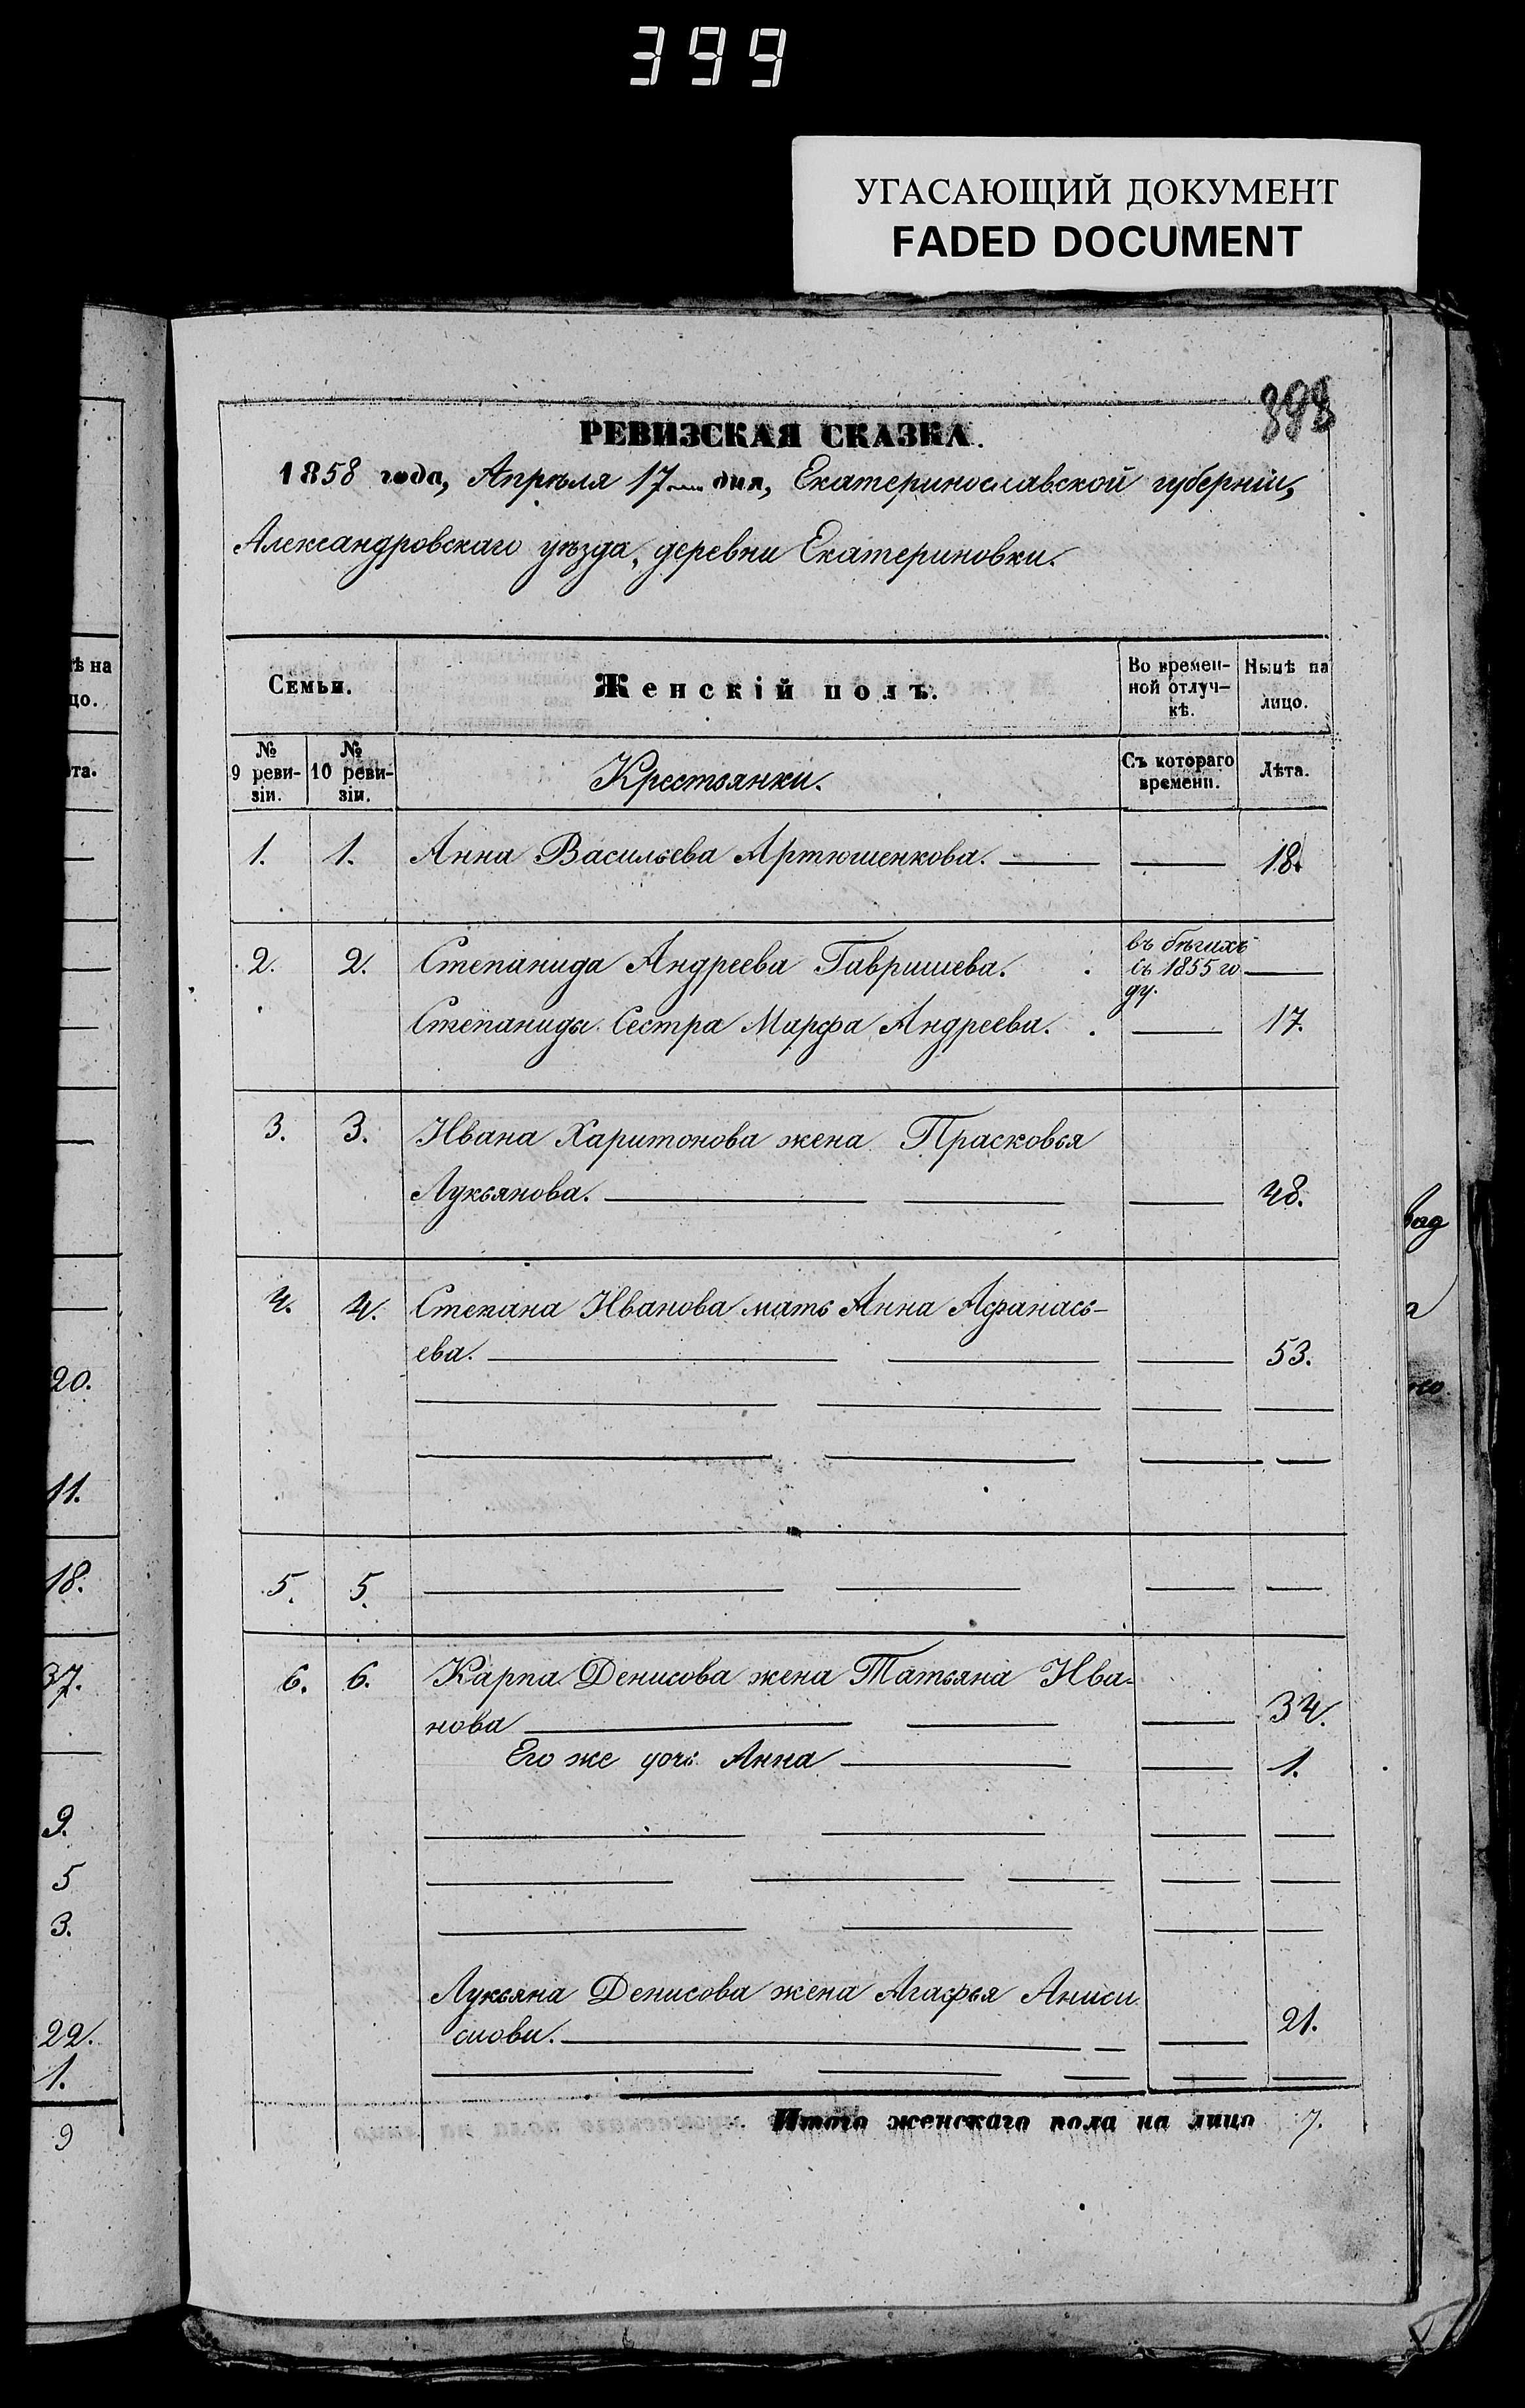 399
УГАСАЮЩИЙ ДОКУМЕНТ
FADED DOCUMENT
398
РЕВИЗСКАЯ СКАЗКА.
1858 года, Апрѣля 17 дня, Екатеринославской губерніи,
Александровскаго уѣзда, деревни Екатериновки.
Семьи. Женскій полъ. Во времен- Нынѣ на
ной отлуч- лицо.
кѣ.
№ № Крестьянки. Съ котораго Лѣта.
9 реви- 10 реви- времени.
зіи. зіи.
1. 1. Анна Васильева Артюшенкова. 18.
2. 2. Степанида Андреева Гавришева. въ бѣгихъ
съ 1855 го
ду.
Степаниды Сестра Марфа Андреева. 17.
3. 3. Ивана Харитонова жена Прасковья
Лукьянова. 48.
4. 4. Степана Иванова мать Анна Афанась-
ева. 53.
5. 5.
6. 6. Карпа Денисова жена Татьяна Ива-
нова 34.
Его же дочь Анна 1.
Лукьяна Денисова жена Агафья Аниси
мова. 21.
Итого женскаго пола на лицо 7.
ѣ на
цо.
та.
20.
11.
18.
37.
9.
5
3.
22.
1.
9